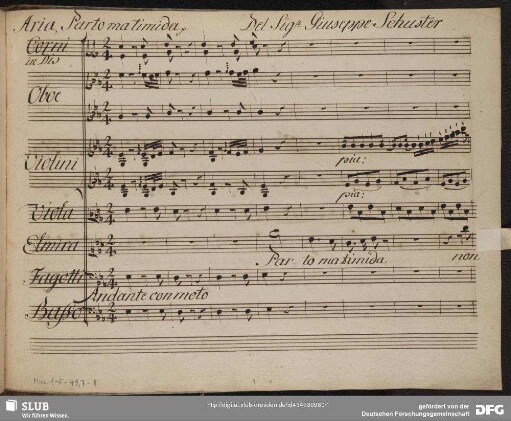 Aria, Parto ma timida, Del Sigr. Giuseppe Schuster
Corni
in Dis
Oboe
Violini
pia:
pia:
Viola
Elmira
Par to ma timida non
Fagotti
Andante con moto
Basso
1
SLUB
Wir führen Wissen.
gefördert von der
Deutschen Forschungsgemeinschaft
DFG